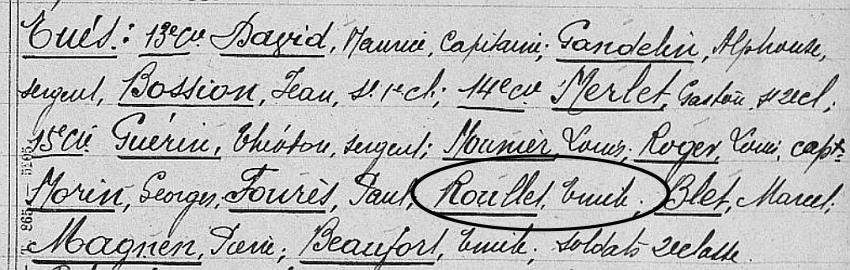 Tués: 13e Cie David, Maurice, Capitaine; Gandelin, Alphonse,
sergent, Bossion, Jean, St 1e cl; 14e Cie Merlet, Gaston, st 2e cl;
15e Cie Guérin, Théodore, sergent; Mounier, Louis; Roger, Louis, capx
Morin, Georges, Fourès, Paul, Rouillet, Emile; Blet, Marcel;
Magnen, Pierre; Beaufort, Emile; soldats 2e classe.